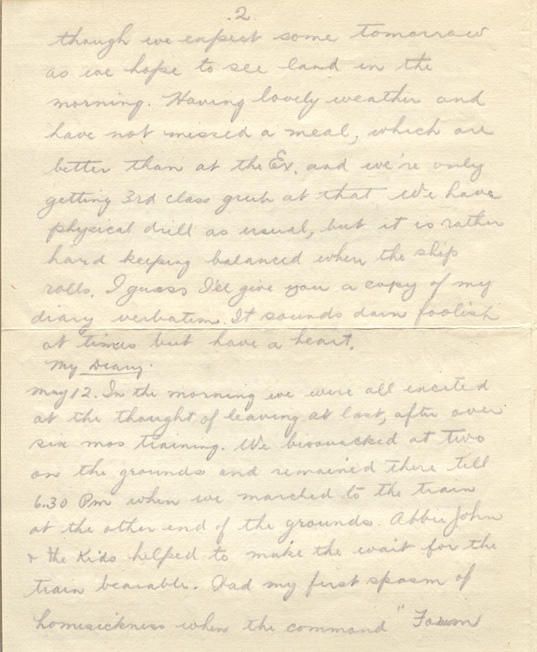 .2
though we expect some tomorrow
as we hope to see land in the
morning. Having lovely weather and
have not missed a meal, which are
better than at the Ex. and we're only
getting 3rd class grub at that. We have
physical drill as usual, but it is rather
hard keeping balanced when the ship
rolls. I guess I'll give you a copy of my
diary verbatim. It sounds darn foolish
at times but have a heart.
My Diary.
May 12. In the morning we were all excited
at the thought of leaving at last, after over
six mos training. We bivouacked at two
on the grounds and remained there till
6.30 Pm when we marched to the train
at the other end of the grounds. Abbie John
& the Kids helped to make the wait for the
train bearable. Had my first spasm of
homesickness when the command "